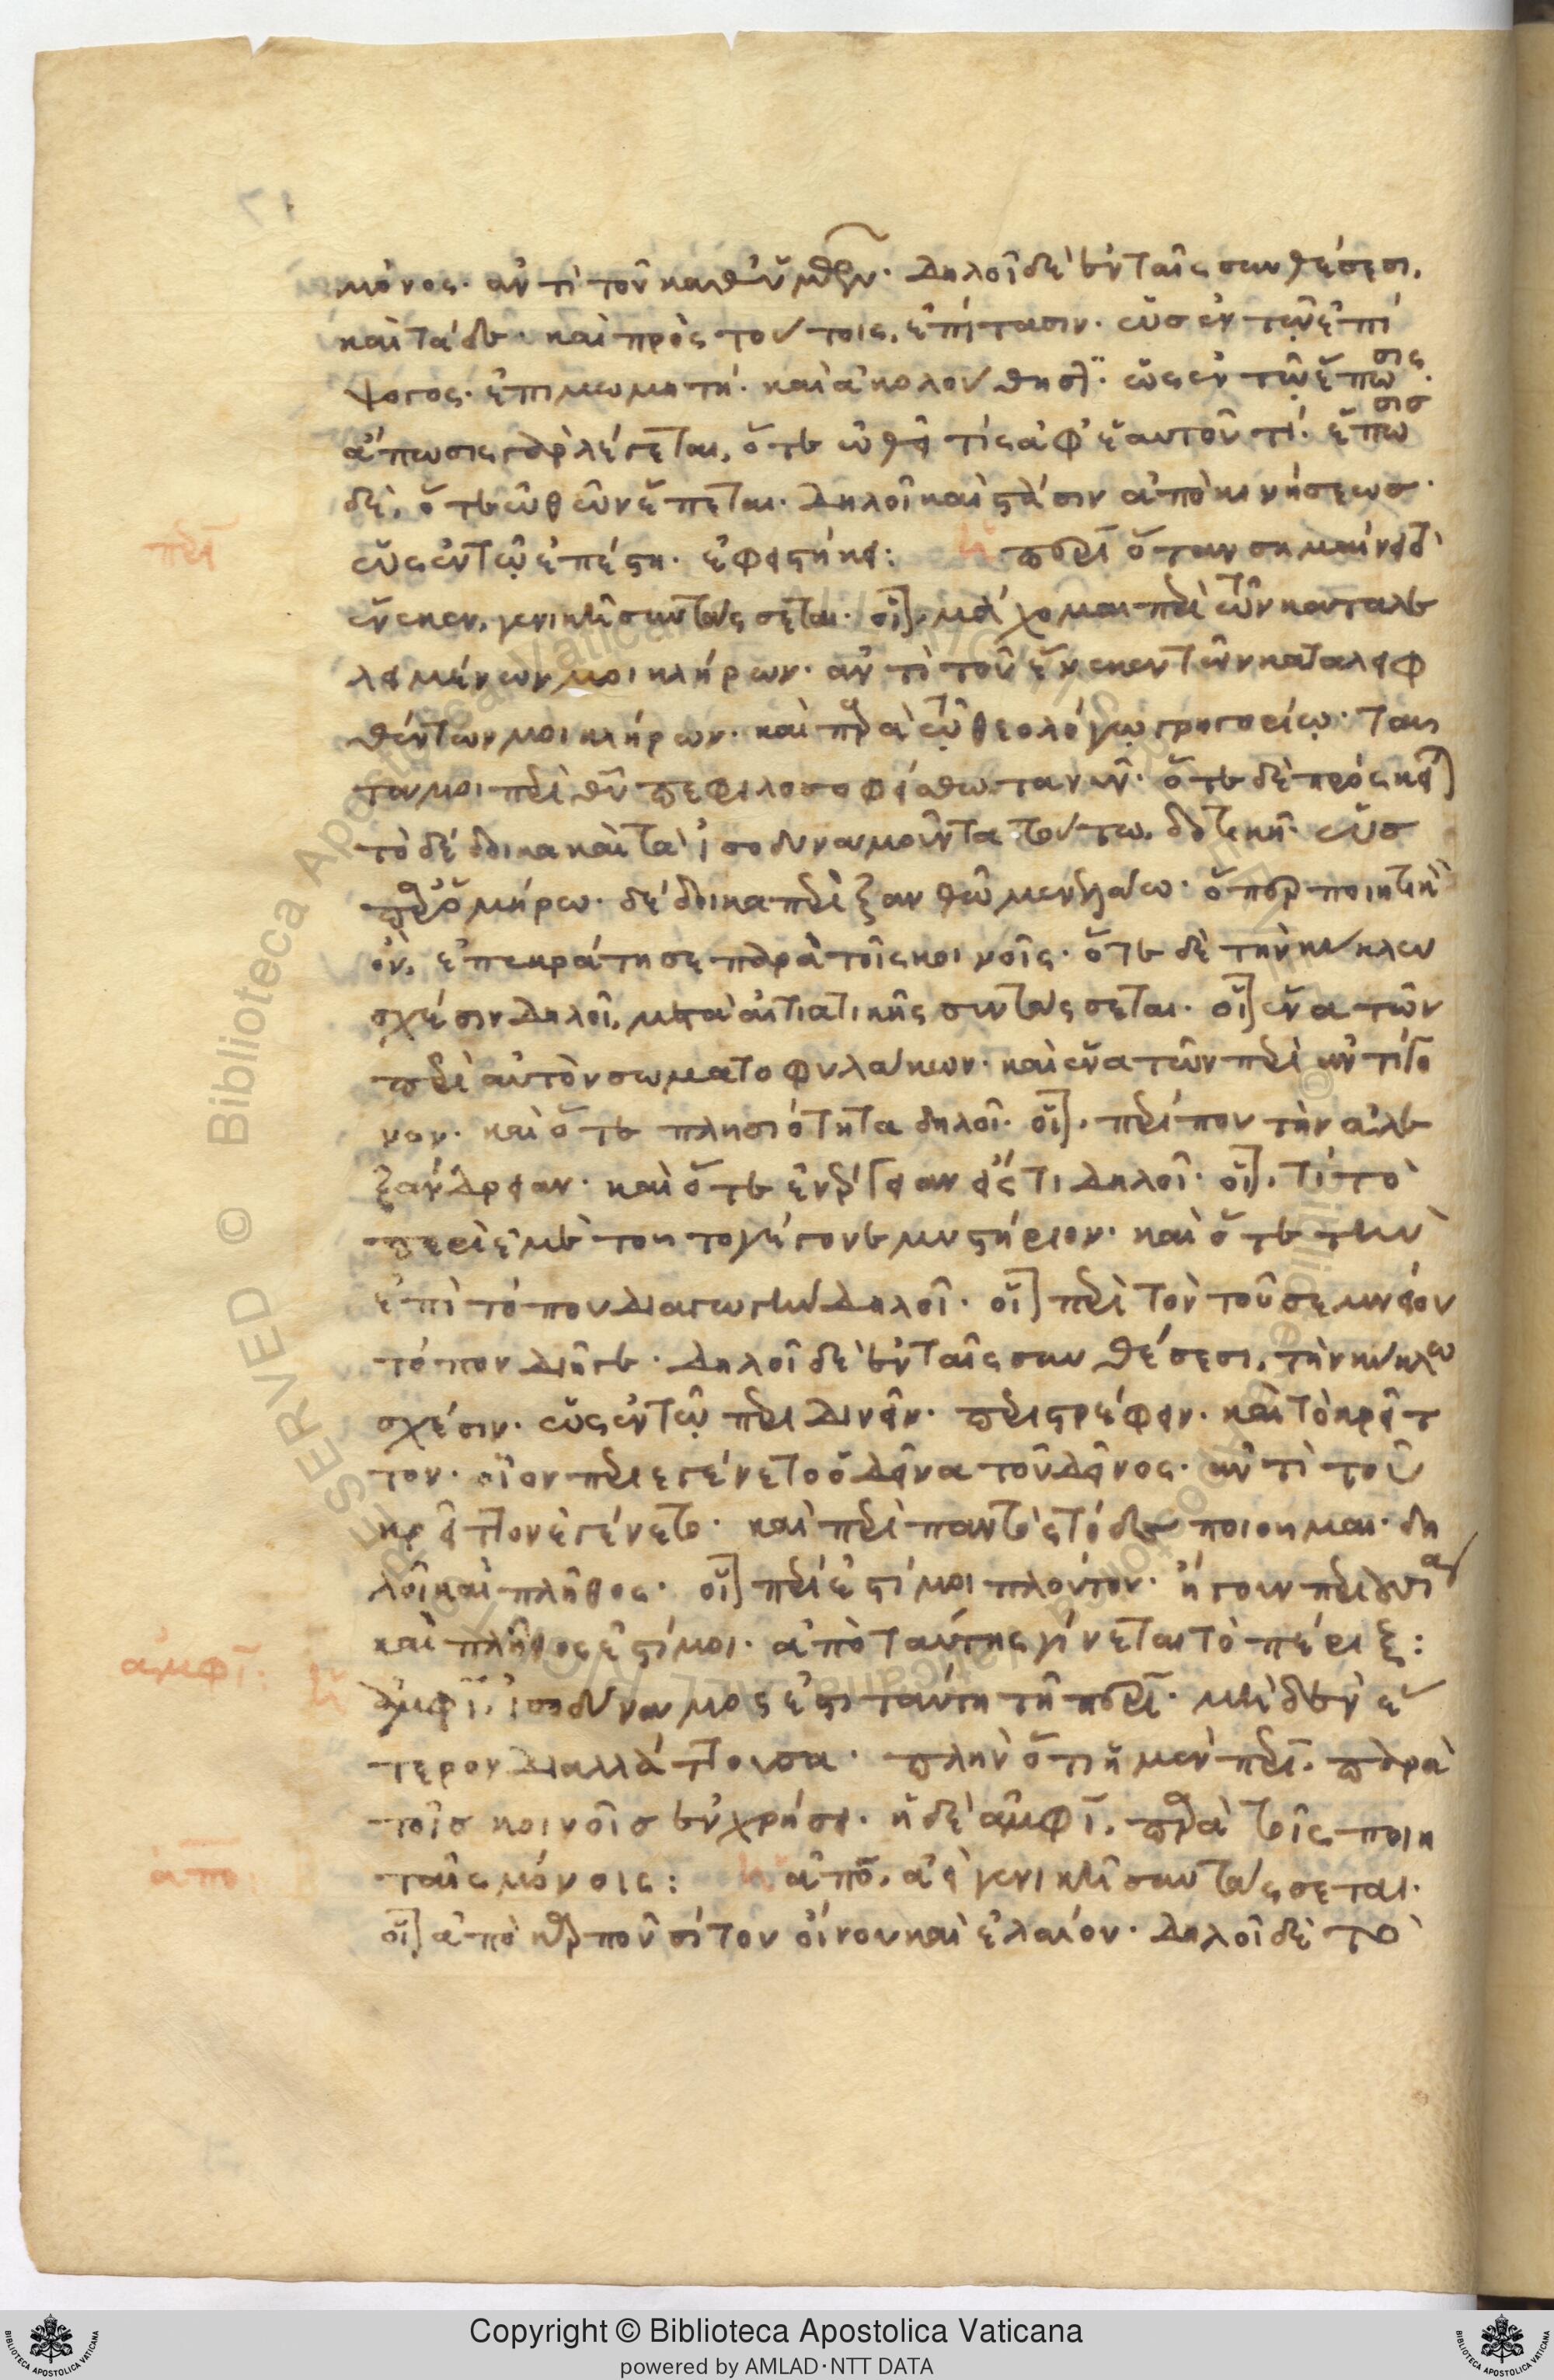 μόνος. ἀντὶ τοῦ καθ' ὧν. δηλοῖ δὲ ἐν ταῖς συνθέσεσι,
καὶ τάδε. καὶ πρὸς τούτοις, ἐπίτασιν. ὡς ἐν τῷ ἐπί
ψογος. ἐπιμωμητή. καὶ ἀκολούθησιν. ὡς ἐν τῷ ἔπωσις.
ἄπωσις γὰρ λέγεται, ὅτε ὠθεῖ τίς ἀφ' ἑαυτοῦ τί. ἔπωσισ
δὲ, ὅτε ὠθῶν ἕπεται. δηλοῖ καὶ στάσιν ἀπὸ κινήσεως.
ὡς ἐν τῷ ἐπέστη. ἐφειστήκει:
περὶ
περὶ ὅταν σημαίνει τὸ
ἕνεκεν, γενικῇ συντάσσεται. οἷον, μάχομαι περὶ τῶν καταλε
λειμένων μοι κλήρων. ἀντὶ τοῦ ἕνεκεν τῶν καταλειφ
θέντων μοι κλήρων. καὶ παρὰ τῷ θεολόγῳ γρηγορίῳ. ταῦ
τα μοι περὶ θεοῦ πεφιλοσοφείσθω τανῦν. ὅτε δὲ πρόσκειται
τὸ δέδοικα καὶ τὰ ἰσοδυναμοῦντα τούτω, δοτικῇ. ὡσ
παρ' ὁμήρω. δέδοικα περὶ ξανθῶ μενελάω. ὅπερ ποιητικὸν
ὂν, ἐπεκράτησε παρὰ τοῖς κοινοῖς. ὅτε δὲ τὴν κύκλω
σχέσιν δηλοῖ, μετὰ αἰτιατικῆς συντάσσεται. οἷον ἕνα τῶν
περὶ αὐτὸν σωματοφυλάκων. καὶ ἕνα τῶν περὶ ἀντίγο
νον. καὶ ὅτε πλησιότητα δηλοῖ. οἷον, περί που τὴν ἀλε
ξάνδρειαν. καὶ ὅτε ἐνέργειαν εἴς τι δηλοῖ. οἷον, τί τὸ
περὶ ἐμὲ τουτο γέγονε μυστήριον. καὶ ὅτε τὴν
ἐπὶ τόπου διαγωγὴν δηλοῖ. οἷον περὶ τὸν τοῦ σεμνείου
τόπον διῆγε. δηλοῖ δὲ ἐν ταῖς συνθέσεσι, τὴν κύκλω
σχέσιν. ὡς ἐν τῷ περιδινεῖν. περιστρέφειν. καὶ τὸ κρεῖτ
τον. οἷον περιεγένετο ὁ δεῖνα τοῦ δεῖνος. ἀντὶ τοῦ
κρεῖττον ἐγένετο. καὶ περὶ παντὸς τόδε ποιουμαι. δη
λοῖ καὶ πλῆθος. οἷον περίεστί μοι πλούτου. ἤγουν περιουσία
καὶ πλῆθος ἐστί μοι. ἀπὸ ταύτης γίνεται τὸ πέριξ:
ἀμφὶ.
ἀμφὶ, ἰσοδύναμος ἐστι ταύτη τῇ περὶ. μηδὲν ἕ
τερον διαλλάττουσα. πλὴν ὅτι ἡ μὲν περὶ, παρὰ
τοῖσ κοινοῖσ ἐν χρήσει. ἡ δὲ ἀμφὶ, παρὰ τοῖς ποιη
ταῖς μόνοις:
ἀπὸ
ἀπὸ, ἀεὶ γενικῇ συντάσσεται.
οἷον ἀπὸ καρποῦ σίτου οἴνου καὶ ἐλαίου. δηλοῖ δὲ τὸ
Copyright © Biblioteca Apostolica Vaticana
powered by AMLAD·NTT DATA